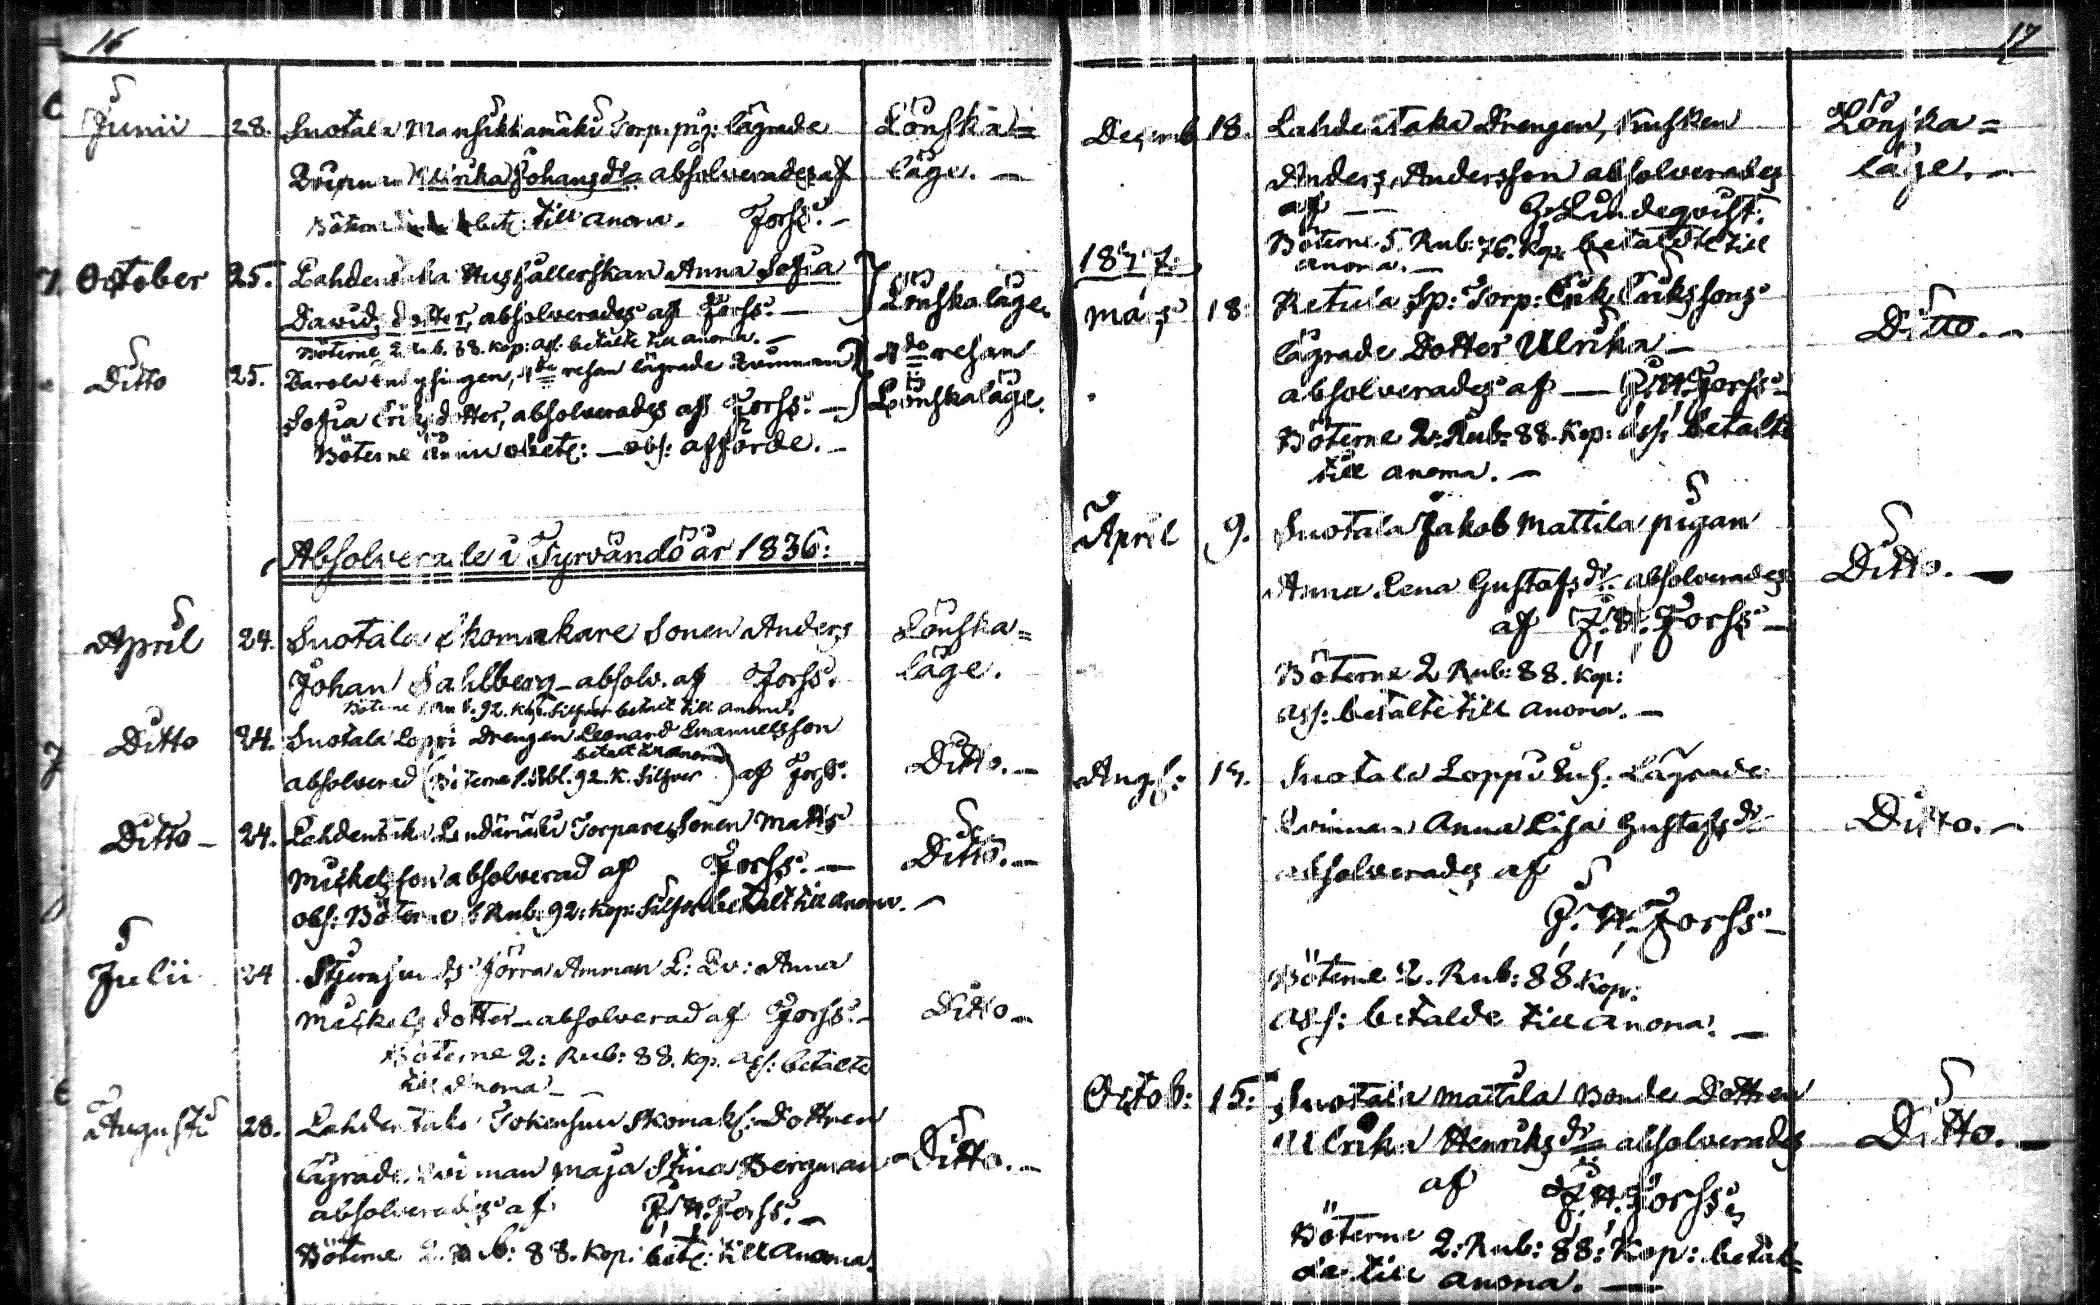 16
Junii 28. Suotala Mansikkamäki Torp. pig: lägrade Lönska=
Qvinnan Ulrika Johansd:r absolverades af läge. —
Böterne betz: till anona. Forss. —
October 25. Lahdentaka Hushållerskan Anna Sofia
Davids dotter, absolverades af Forss. — Lönskaläge.
Böterne 2 Rub. 88. Kop: ass. betalte till anona. —
Ditto 25. lägrade Qvinnan 4de resan
Sofia Eriks dotter, absolverades af Forss. — Lönskaläge.
Böterne ännu obetz: — obs: afförde. —
Absolverade i Tyrvändö år 1836:
April 24. Suotala Skomakare Sonen Anders Lönska=
Johan Sahlberg — absolv. af Forss. läge.
Böterne 1 Rub. 92. Kop. Silfver betalt till anona.
Ditto 24. Suotala Loppi Drengen Leonard Emanuelsson
betalt till anona
absolverad (Böterne 1. Rbl. 92. K. Silfver) af Forss. Ditto. —
Ditto — 24. Lahdentaka Torpare Sonen Matts
Mickelsson absolverad af Forss. — Ditto. —
obs: Böterne 1 Rub: 92: Kop: Silfver betalt till anona. —
Julii 24 Stjernsunds förra Amman L: Qv: Anna
Mickels dotter — absolverad af Forss. — Ditto —
Böterne 2: Rub: 88. Kop. ass: betalte
till anona —
Augusti 28. Lahdentaka Skomak: Dottren
lägrade Qvinnan Maja Stina Bergman Ditto. —
absolverades af J. H. Forss. —
Böterne 2. Rub: 88. Kop: betz: till anona.
17
Decemb 18. Lahdentaka Drengen, Kusken Lönska=
Anders Andersson absolverades läge. —
af — Lindeqvist.
Böterne 5. Rub: 76. Kop: betaldte till
anona. —
1837.
Mars 18 Retula Sp: Torp: Erik Erikssons
lägrade Dotter Ulrika — Ditto. —
absolverades af — J. H. Forss —
Böterne 2: Rub: 88. Kop: ass: betalte
till anona. —
April 9. Suotala Jakob Mattila pigan
Anna Lena Gustafs dr absolverades Ditto. —
af J. H. Forss —
Böterne 2 Rub: 88. Kop:
ass: betalte till anona. —
Aug: Suotala Loppi Lägrade
Qvinnan Anna Lisa Gustafs dr Ditto. —
absolverades af
J. H. Forss —
Böterne 2. Rub: 88. Kop:
ass: betalde till anona. —
Octob: 15: Suotala Mattila Bonde Dottren
Ulrika Henriks dr absolverades Ditto. —
af J. H. Forss
Böterne 2: Rub: 88: Kop: betal=
de till anona. —